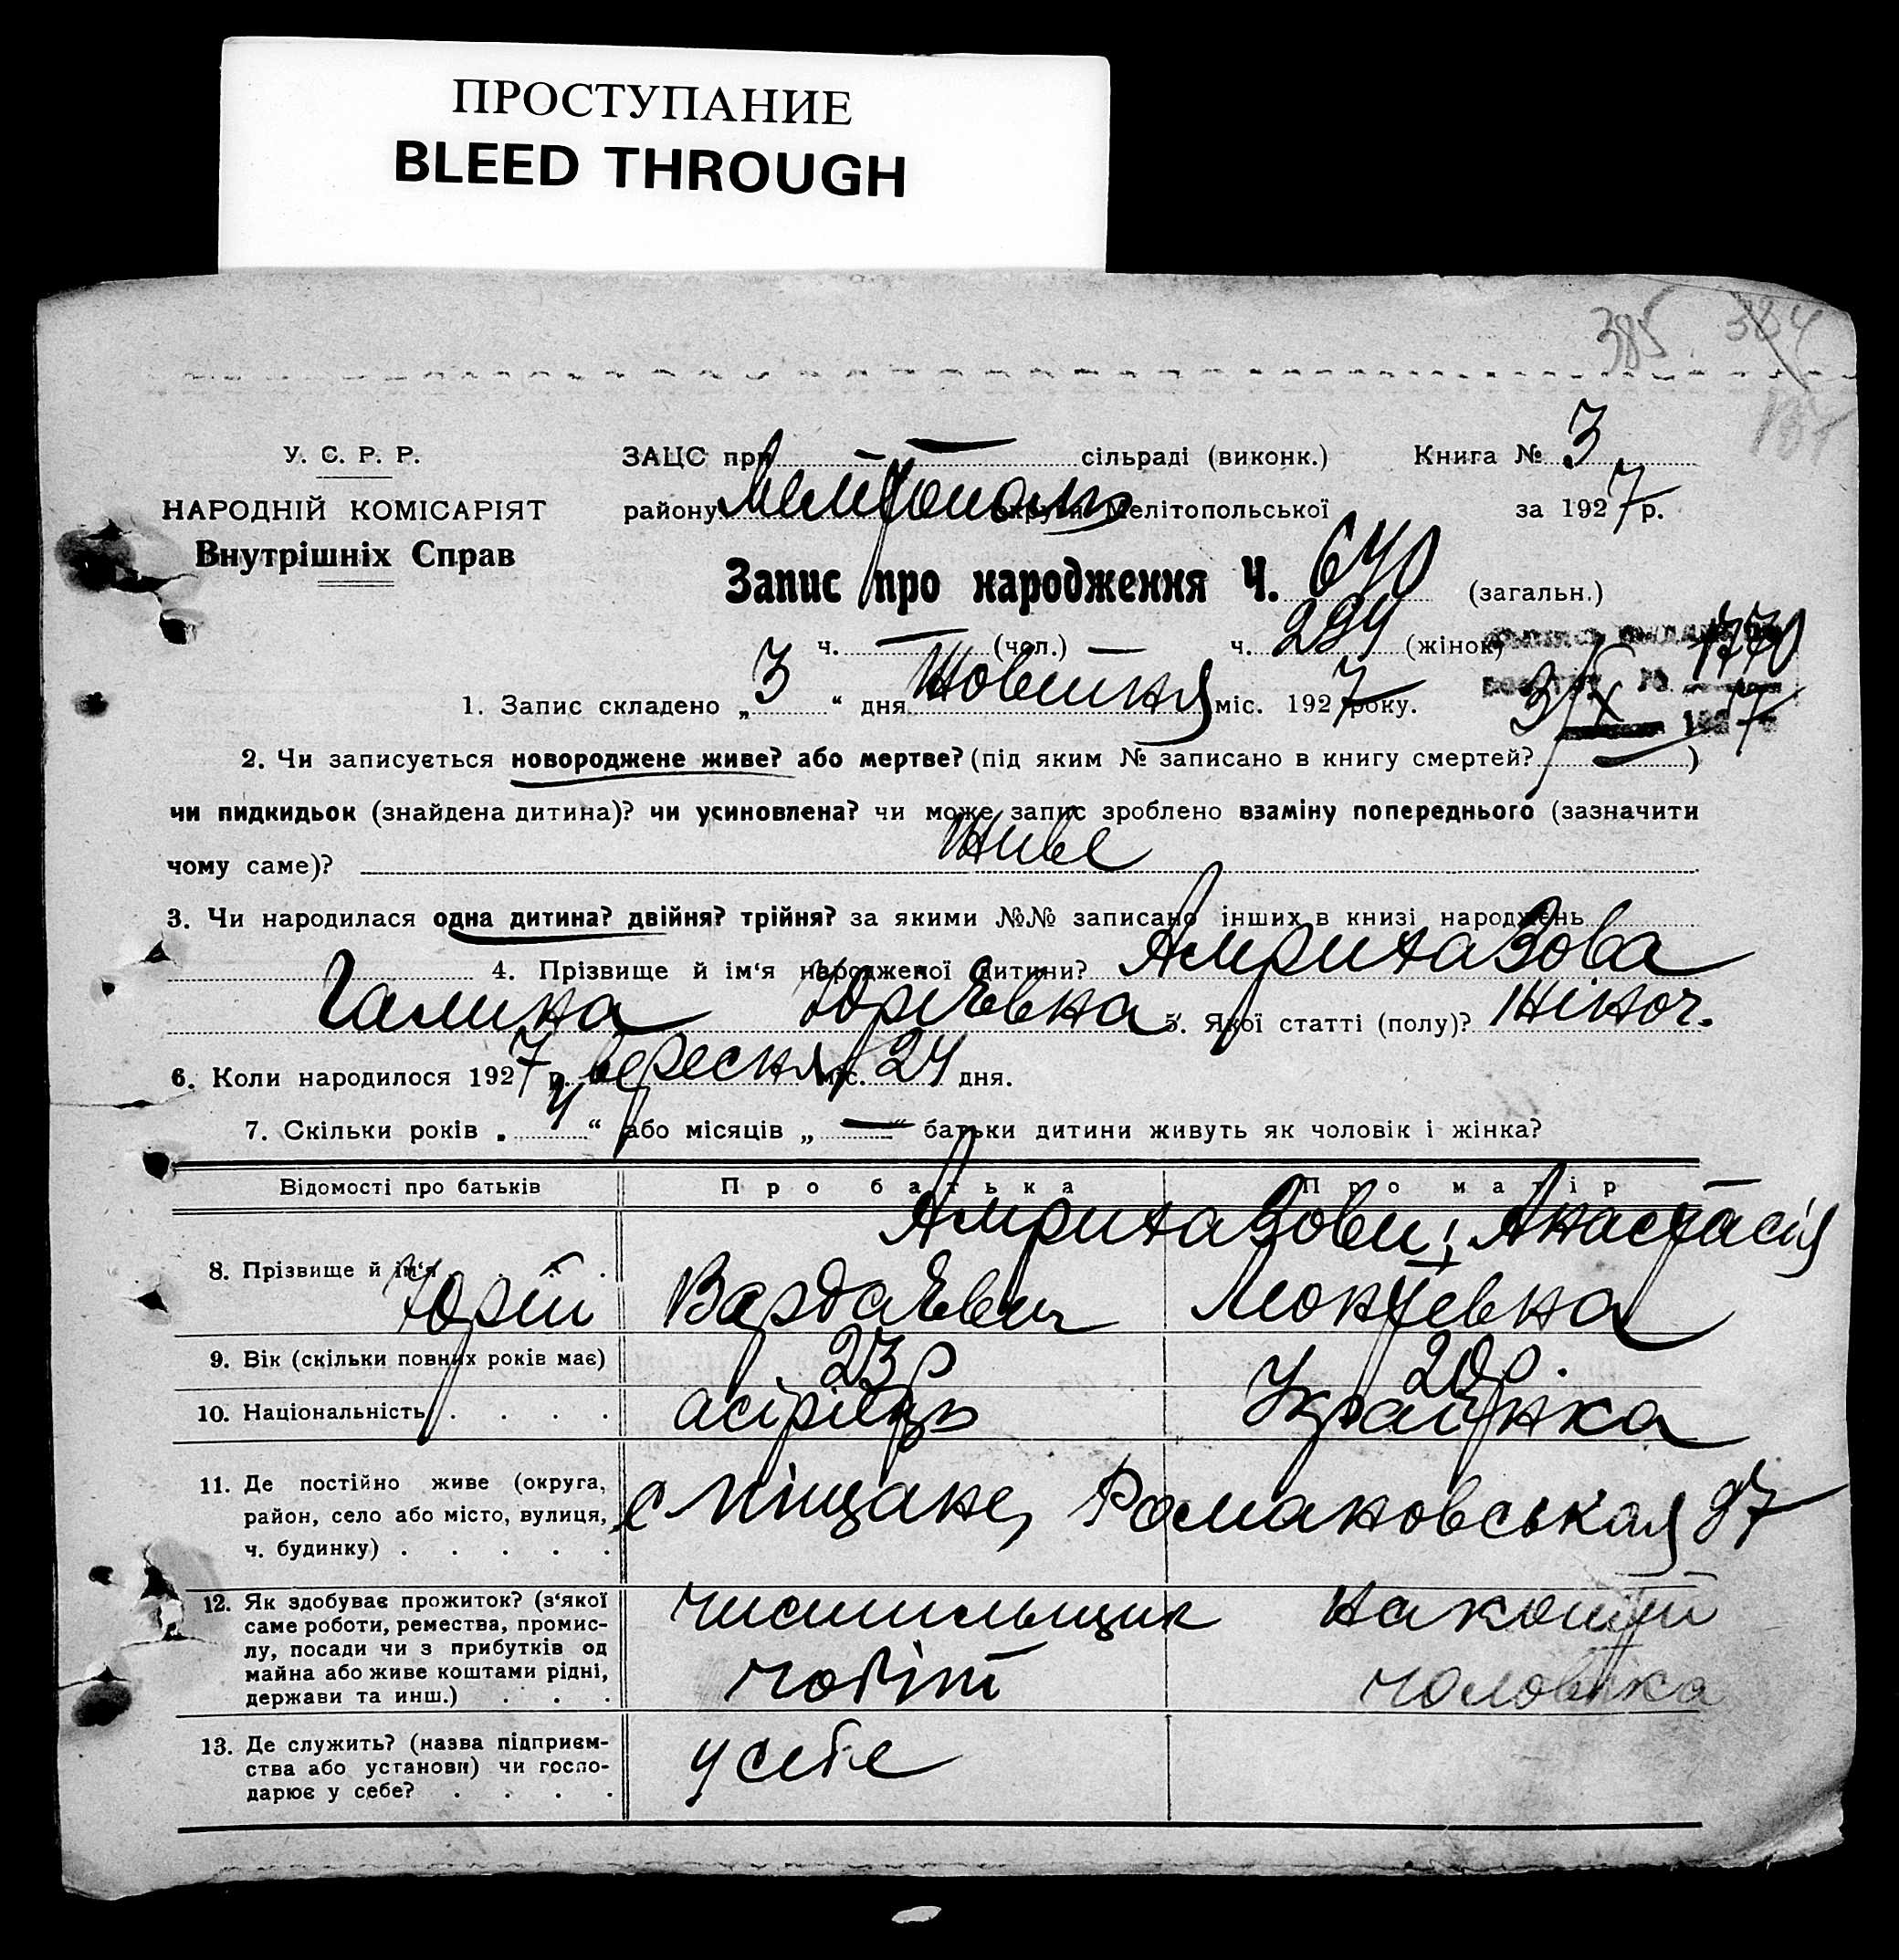 ПРОСТУПАНИЕ
BLEED THROUGH
385 384
187
У. С. Р. Р.
НАРОДНІЙ КОМІСАРІЯТ
Внутрішніх Справ
ЗАЦС при — сільраді (виконк.) Книга № 3
району Мелітополь округи Мелітопольської за 1927 р.
Запис про народження Ч. 640 (загальн.)
ч. — (чол.) — ч. 294 (жінок)
1770
1. Запис складено „ 3 “ дня Жовтня міс. 1927 року.
3/X 1927
2. Чи записується новороджене живе? або мертве? (під яким № записано в книгу смертей? — )
чи пидкидьок (знайдена дитина)? чи усиновлена? чи може запис зроблено взаміну попереднього (зазначити
чому саме)? Живе
3. Чи народилася одна дитина? двійня? трійня? за якими №№ записано інших в книзі народжень
4. Прізвище й ім‘я народженої дитини? Амрихазова
Галина Юріевна 5. Якої статті (полу)? Жіноч.
6. Коли народилося 1927 р. вересня міс. 24 дня.
7. Скільки років „ 4 “ або місяців „ — “ батьки дитини живуть як чоловік і жінка?
Відомості про батьків Про батька Про матір
8. Прізвище й ім‘я . . . . Амрихазови: Анастасія
Юрій Вардаевич Мокіевна
9. Вік (скільки повних років має) 23 р 20 р.
10. Національність . . . . асірієць Українка
11. Де постійно живе (округа,
район, село або місто, вулиця,
ч. будинку) . . . . .
с Піщане, Романовськая 97
12. Як здобуває прожиток? (з‘якої
саме роботи, ремества, промис-
лу, посади чи з прибутків од
майна або живе коштами рідні,
держави та инш.) . . .
чистильщик
чобіт
на кошти
чоловіка
13. Де служить? (назва підприєм-
ства або установи) чи госпо-
дарює у себе? . . . .
у себе